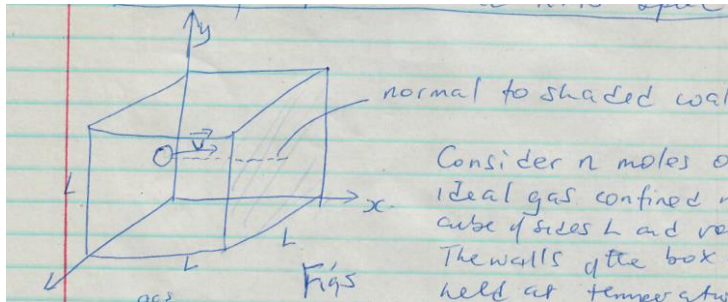 y
normal to shaded wal
v
Consider n moles o
L
ideal gas confined
x
cube of sides L and
L
The walls of the box
L
Figs
held at temperatu
gas